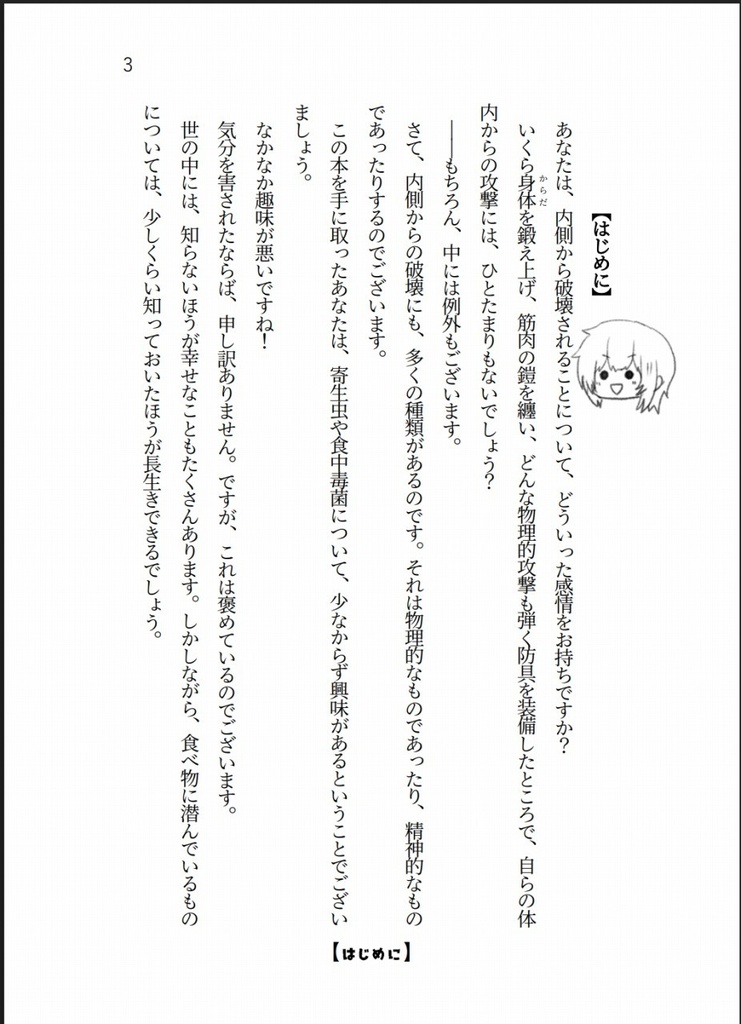 【はじめに】
あなたは、内側から破壊されることについて、どういった感情をお持ちですか？
いくら身体を鍛え上げ、筋肉の鎧を纏い、どんな物理的攻撃も弾く防具を装備したところで、自らの体
からだ
内からの攻撃には、ひとたまりもないでしょう？
――もちろん、中には例外もございます。
さて、内側からの破壊にも、多くの種類があるのです。それは物理的なものであったり、精神的なもの
であったりするのでございます。
この本を手に取ったあなたは、寄生虫や食中毒菌について、少なからず興味があるということでござい
ましょう。
なかなか趣味が悪いですね！
気分を害されたならば、申し訳ありません。ですが、これは褒めているのでございます。
世の中には、知らないほうが幸せなこともたくさんあります。しかしながら、食べ物に潜んでいるもの
については、少しくらい知っておいたほうが長生きできるでしょう。
3
【はじめに】